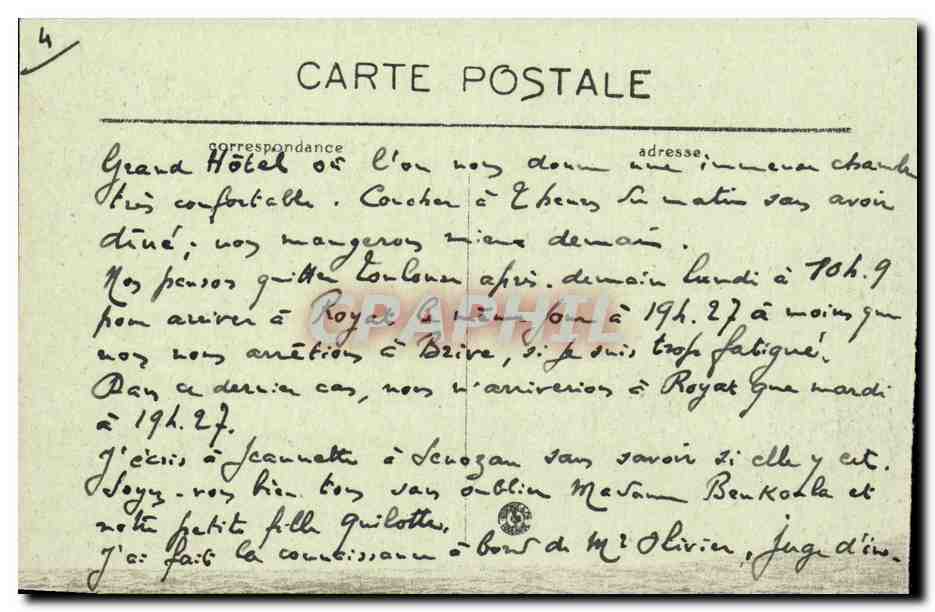 4
CARTE POSTALE
correspondance
adresse
Grand Hôtel où l'on nous donne une immense chambre
très confortable. Coucher à 2 heures du matin sans avoir
dîné ; nous mangerons mieux demain.
Nous pensons quitter Toulouse après-demain lundi à 10h.9
pour arriver à Royat le même jour à 19h.27 à moins que
nous nous arrêtions à Brive, si je suis trop fatigué.
Dans ce dernier cas, nous n'arriverions à Royat que mardi
à 19h.27.
J'écris à Jeannette à Senozan sans savoir si elle y est.
Soyez-vous bien tous sans oublier Madame et
notre petite fille
J'ai fait la connaissance à bord de Mr Olivier, Juge d'ins-
CPAPHIL